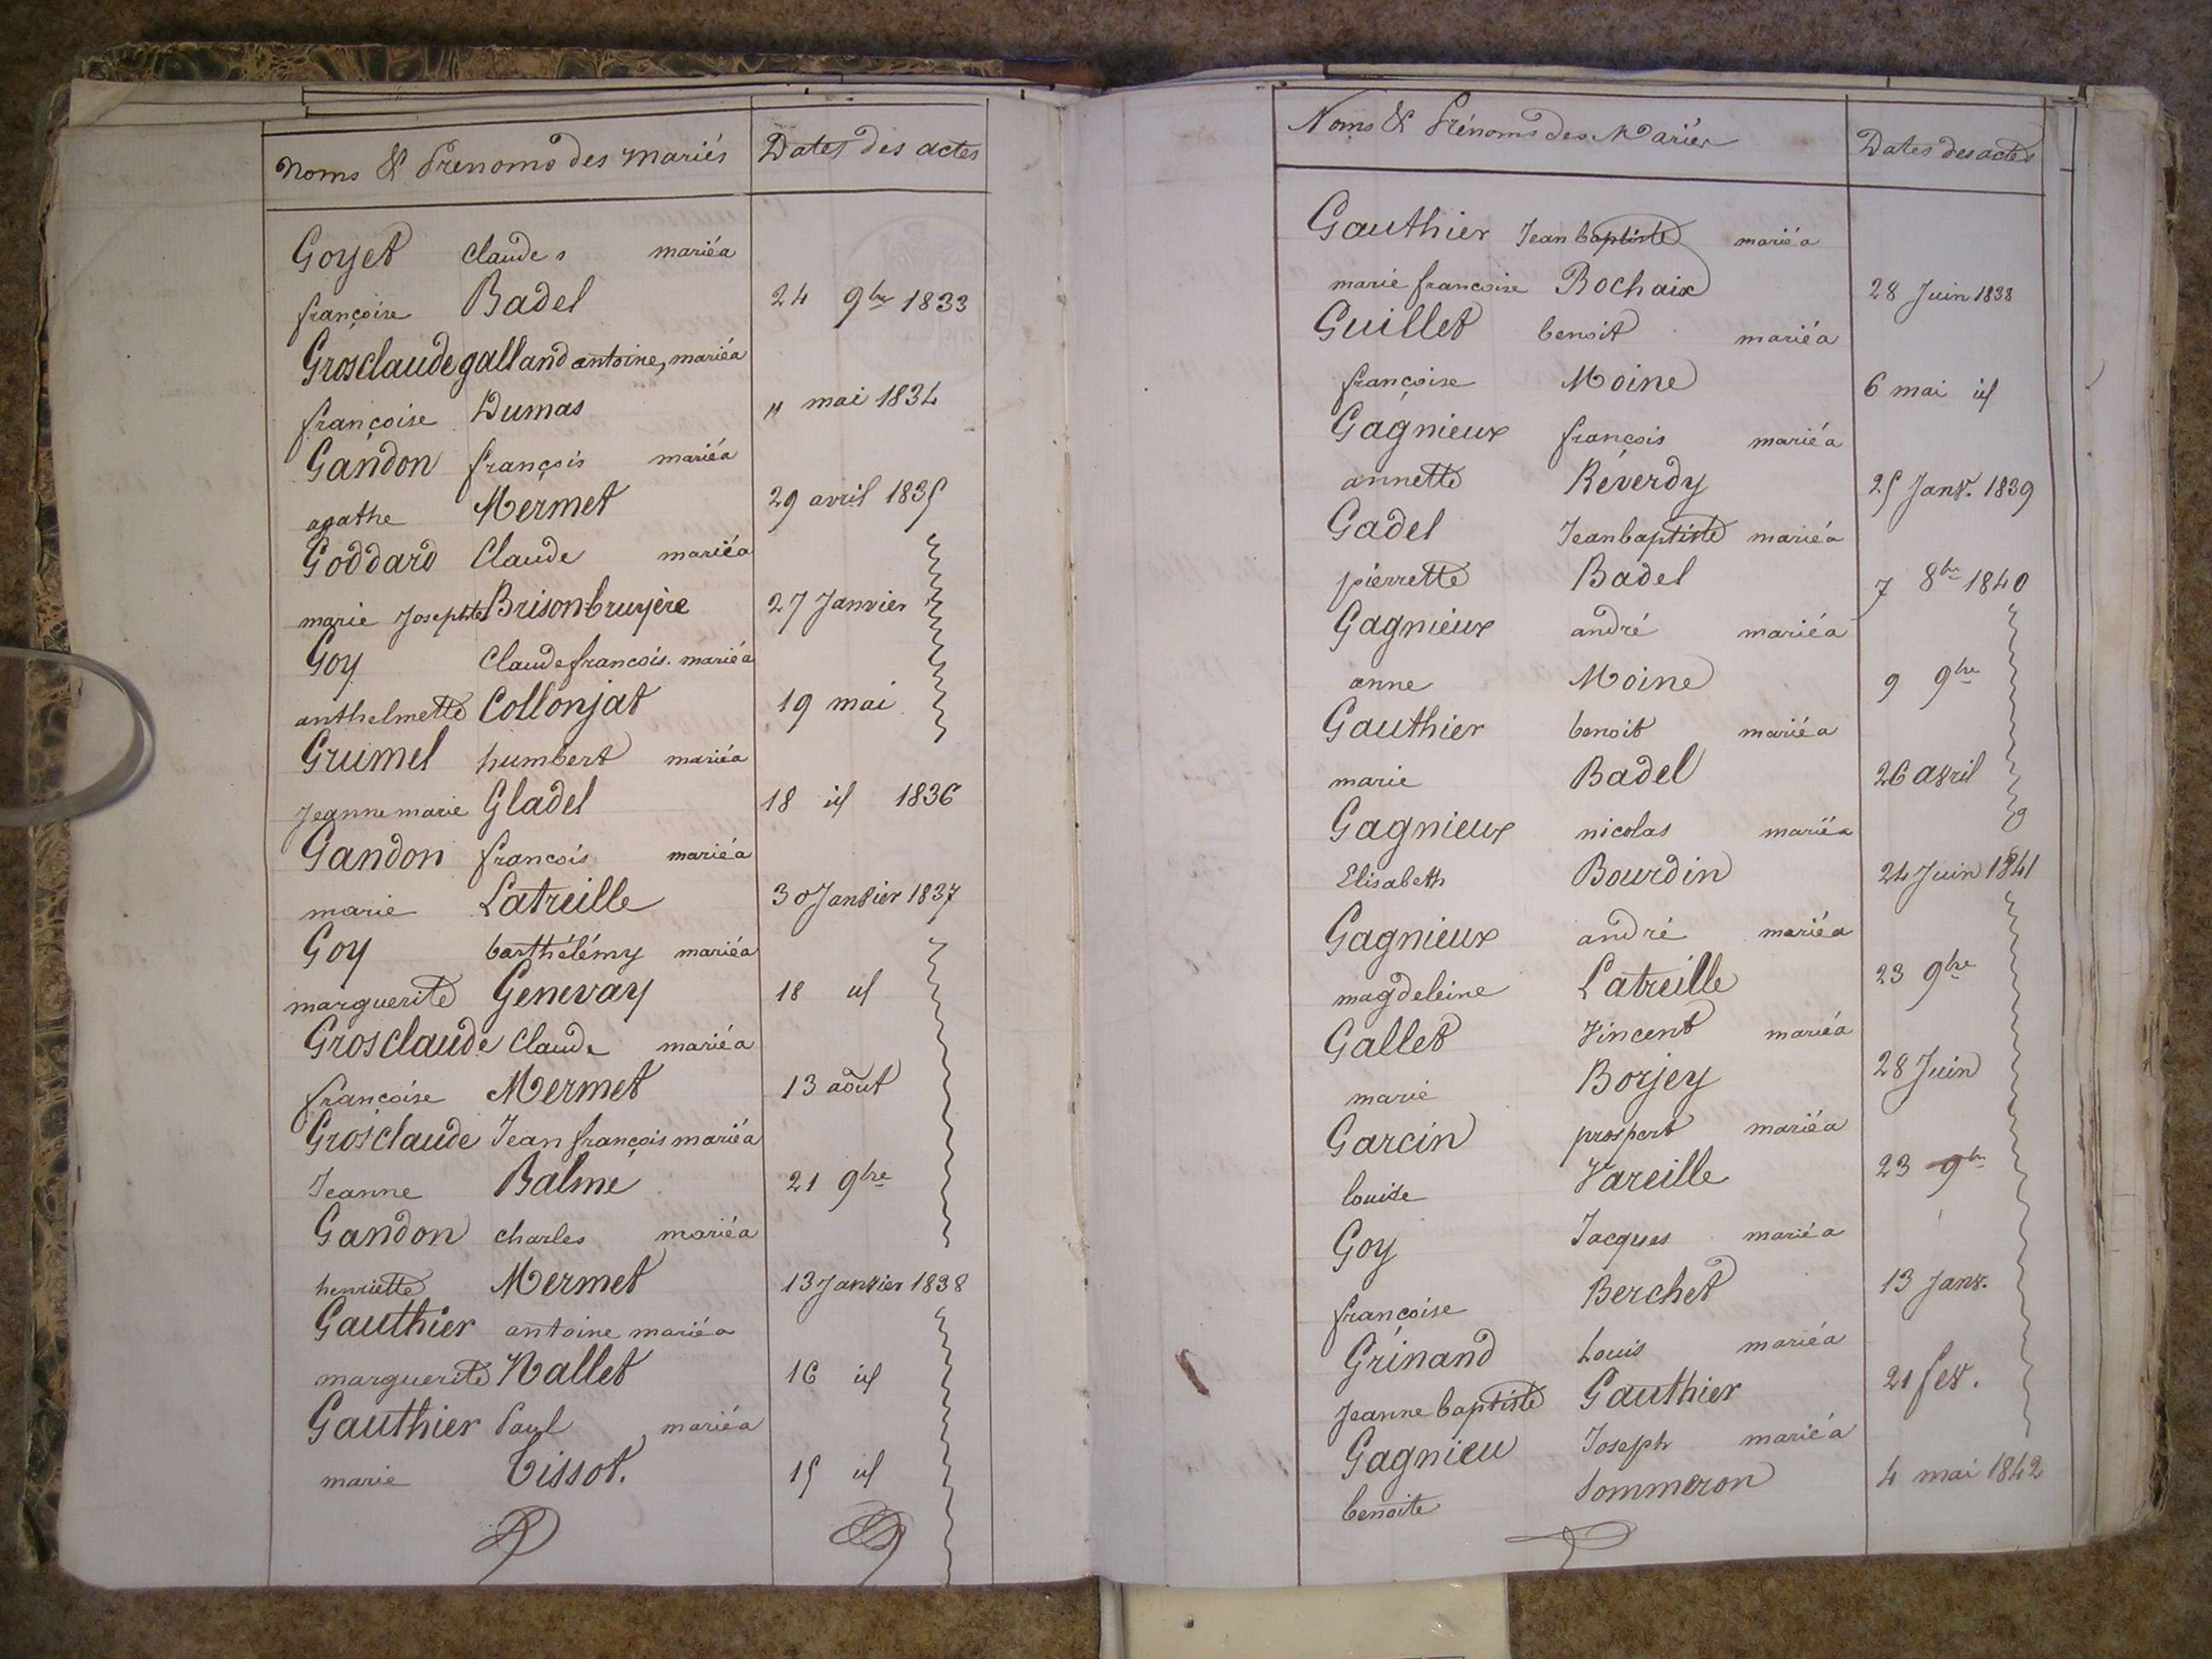 Noms & Prenoms des mariés Dates des actes
Goyet Claude mariéa
françoise Badel 24 9bre 1833
Grosclaude galland antoine, mariéa
françoise Dumas " mai 1834
Gandon françois mariéa
agathe Mermet 29 avril 1835
Goddard Claude mariéa
marie Josephte Brisonbruyère 27 Janvier
Goy Claude francois. mariéa
anthelmette Collonjat 19 mai
Grumel humbert mariéa
Jeanne marie Gladel 18 id 1836
Gandon francois mariéa
marie Latreille 30 Janvier 1837
Goy barthélémy mariéa
marguerite Genevay 18 id
Grosclaude Claude mariéa
françoise Mermet 13 août
Grosclaude Jean françois mariéa
Jeanne Balme 21 9bre
Gandon charles mariéa
henriette Mermet 13 Janvier 1838
Gauthier antoine mariéa
marguerite Nallet 16 id
Gauthier Paul mariéa
marie Tissot. 15 id
Noms & Prénoms des Mariés Dates des actes
Gauthier Jean baptiste mariéa
marie francoise Bochaix 28 Juin 1838
Guillet benoit mariéa
françoise Moine 6 mai id
Gagnieux françois mariéa
annette Réverdy 25 Janv. 1839
Gadel Jean baptiste mariéa
pierrette Badel 7 8bre 1840
Gagnieux andré mariéa
anne Moine 9 9bre
Gauthier benoit mariéa
marie Badel 26 avril
Gagnieux nicolas mariéa
Elisabeth Bourdin 24 Juin 1841
Gagnieux andré mariéa
magdeleine Latreille 23 9bre
Gallet Vincent mariéa
marie Borjey 28 Juin
Garcin prospert mariéa
louise Vareille 23 9bre
Goy Jacques mariéa
françoise Berchet 13 Janv.
Grinand Louis mariéa
Jeanne baptiste Gauthier 21 fev.
Gagnieu Joseph mariéa
benoite Pommeron 4 mai 1842